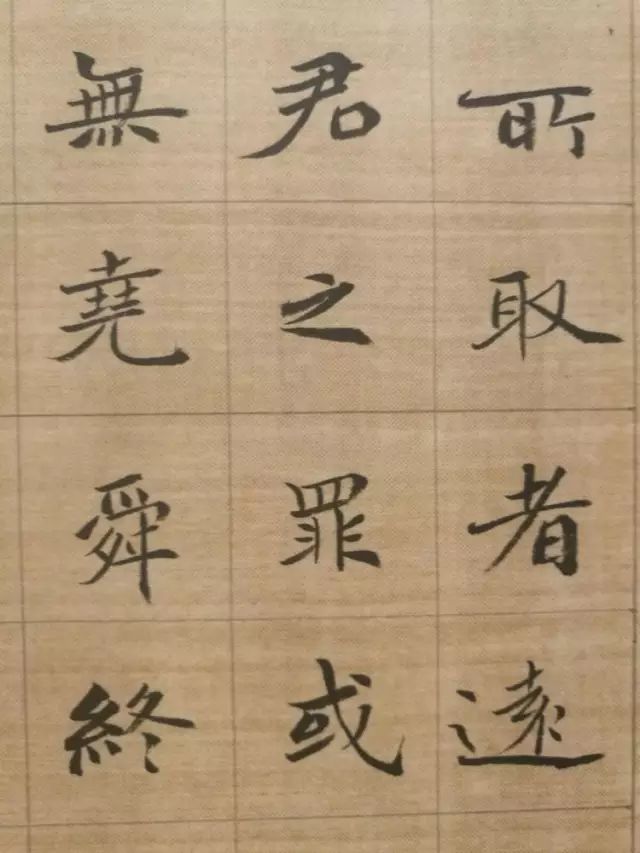 所取者遠
君之罪或
無堯舜終